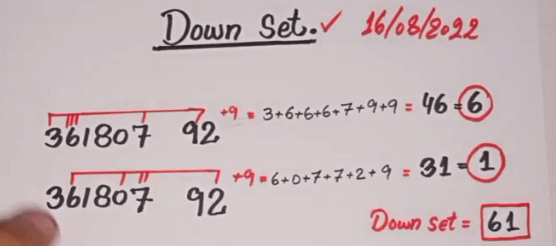 Down Set. ✓ 16/08/2022
361807 92 +9 = 3+6+6+6+7+9+9 = 46 = 6
361807 92 +9 = 6+0+7+7+2+9 = 31 = 1
Down set = 61